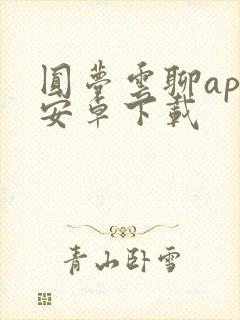 圆梦雲聊ap
安卓下載
青山卧雪